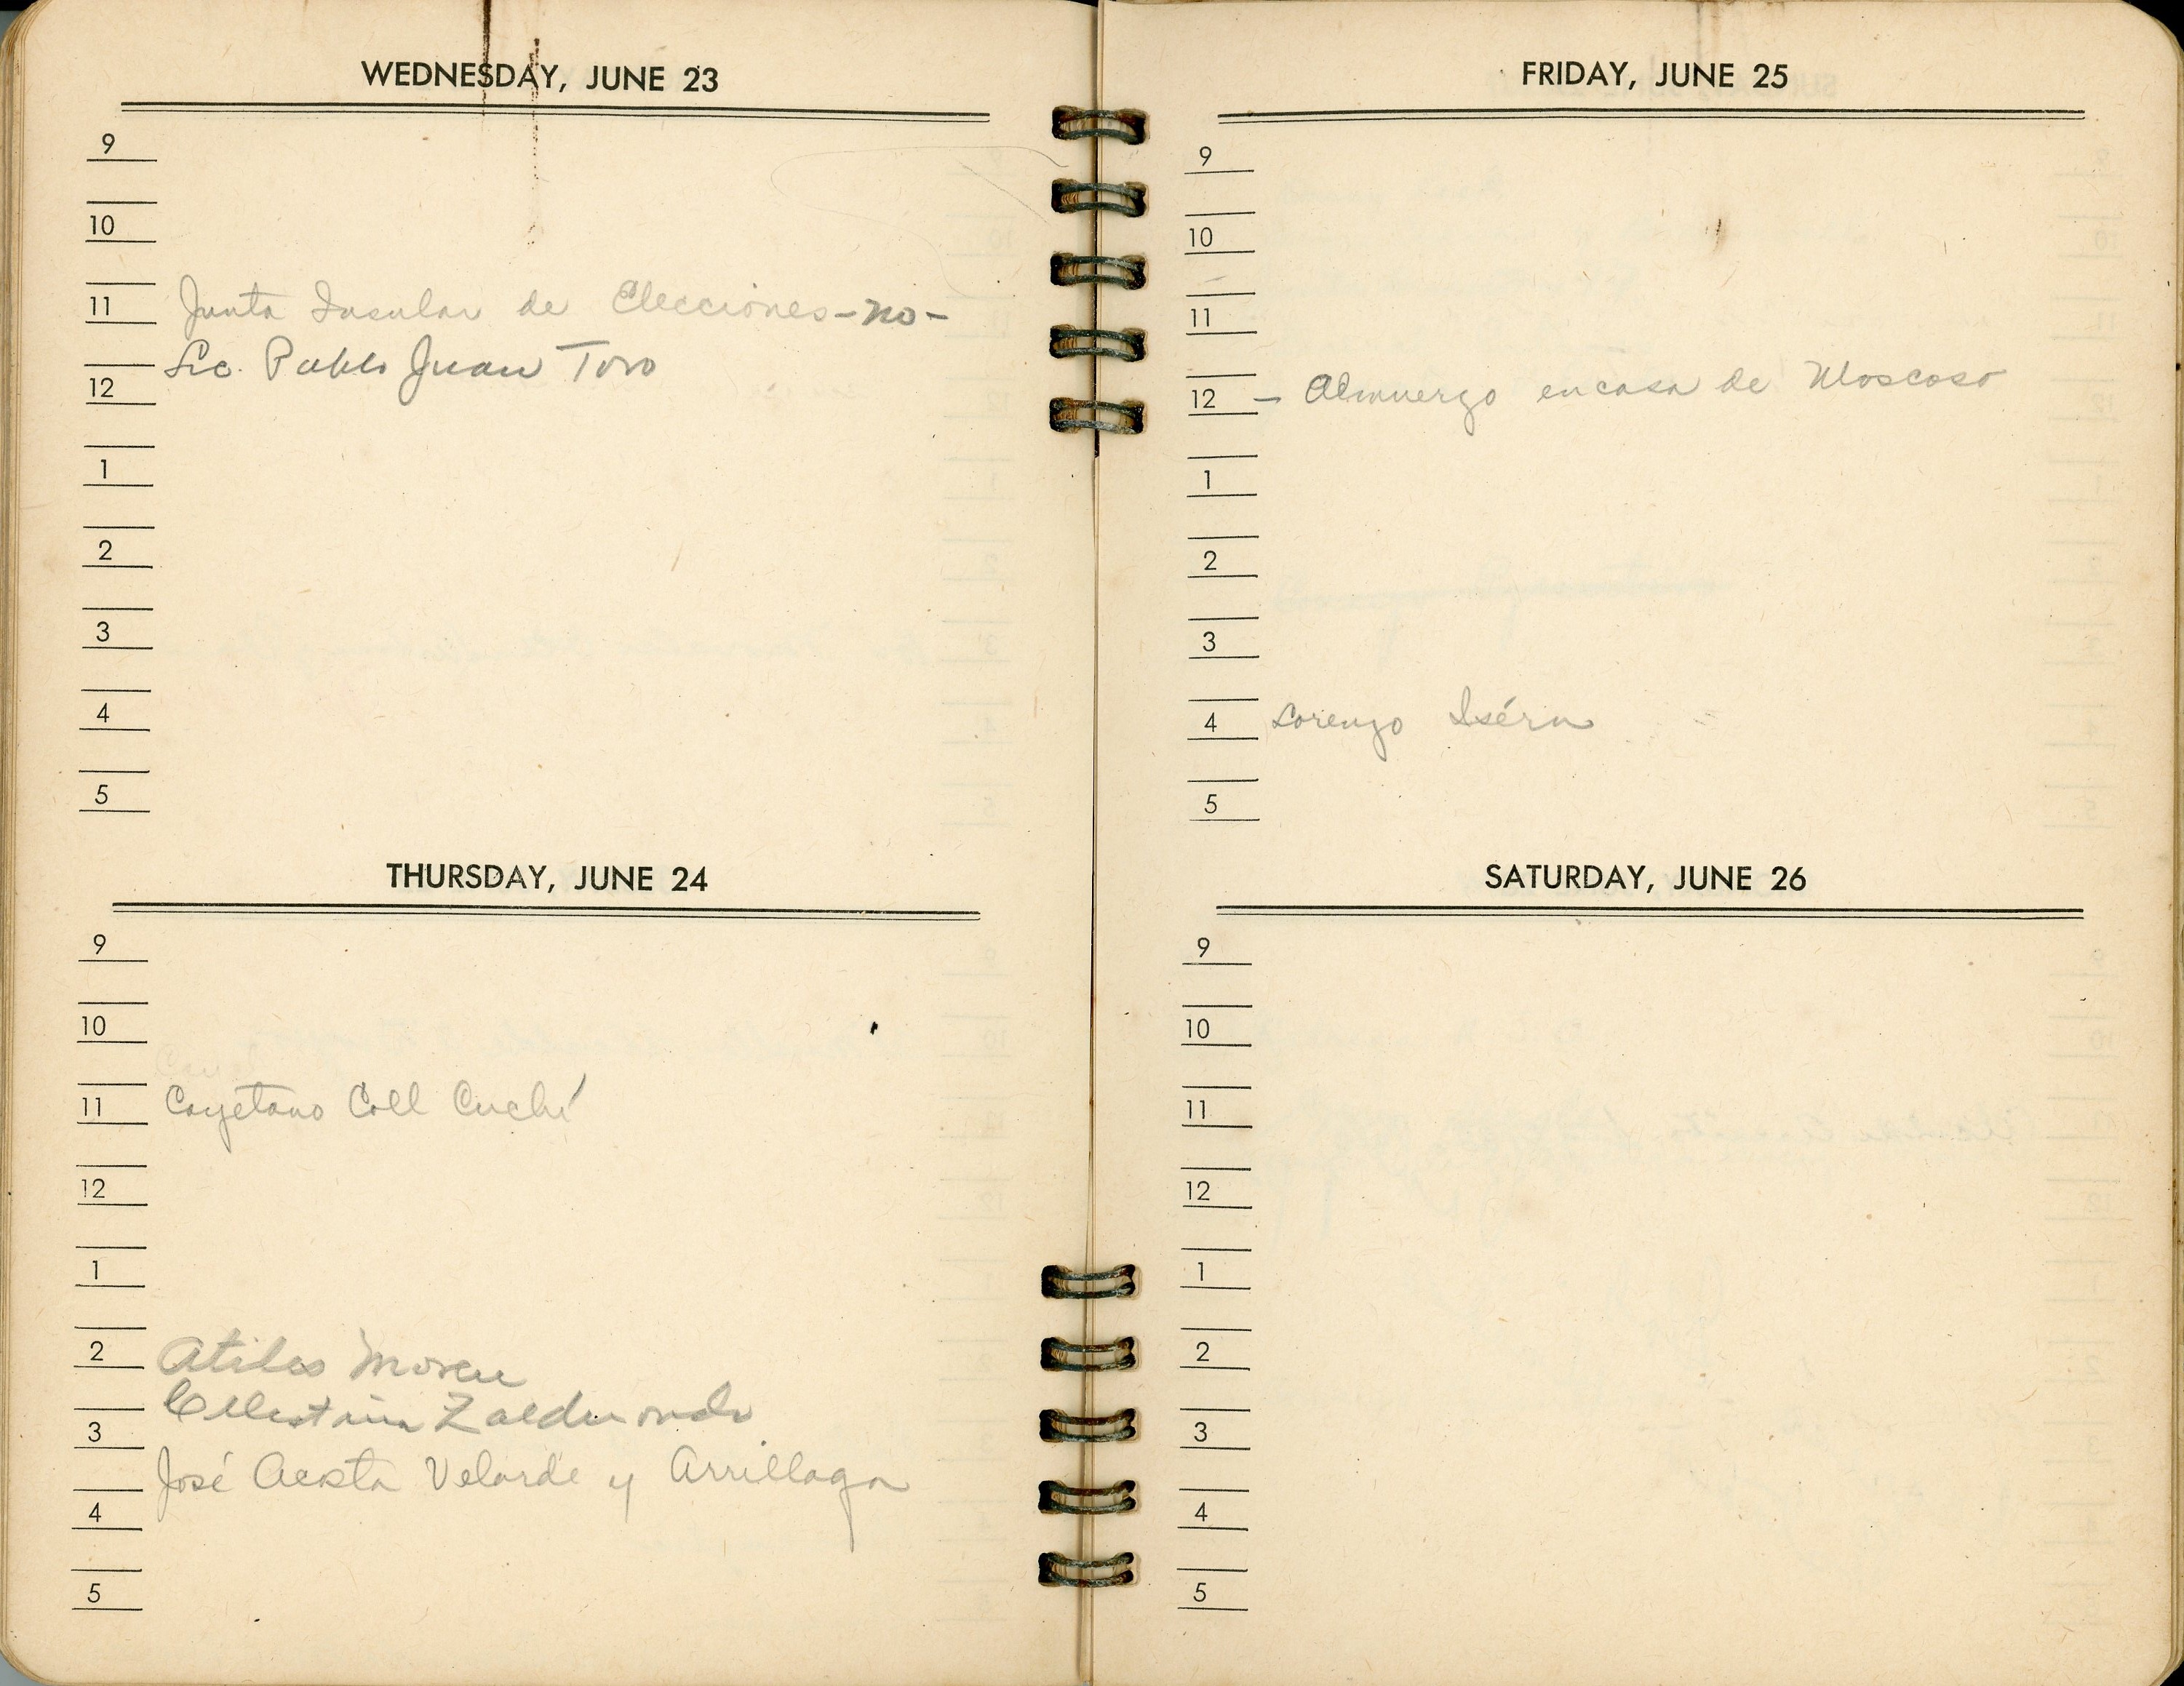 WEDNESDAY, JUNE 23
9
10
11 Junta Insular de Elecciones - no -
Lic. Pablo Juan Toro
12
1
2
3
4
5
THURSDAY, JUNE 24
9
10
11 Cayetano Coll Cuchí
12
1
2 Atiles Moreu
Celestina Zalduondo
3
José Acosta Velarde y Arrillaga
4
5
FRIDAY, JUNE 25
9
10
11
12 - Almuerzo en casa de Moscoso
1
2
3
4 Lorenzo
5
SATURDAY, JUNE 26
9
10
11
12
1
2
3
4
5